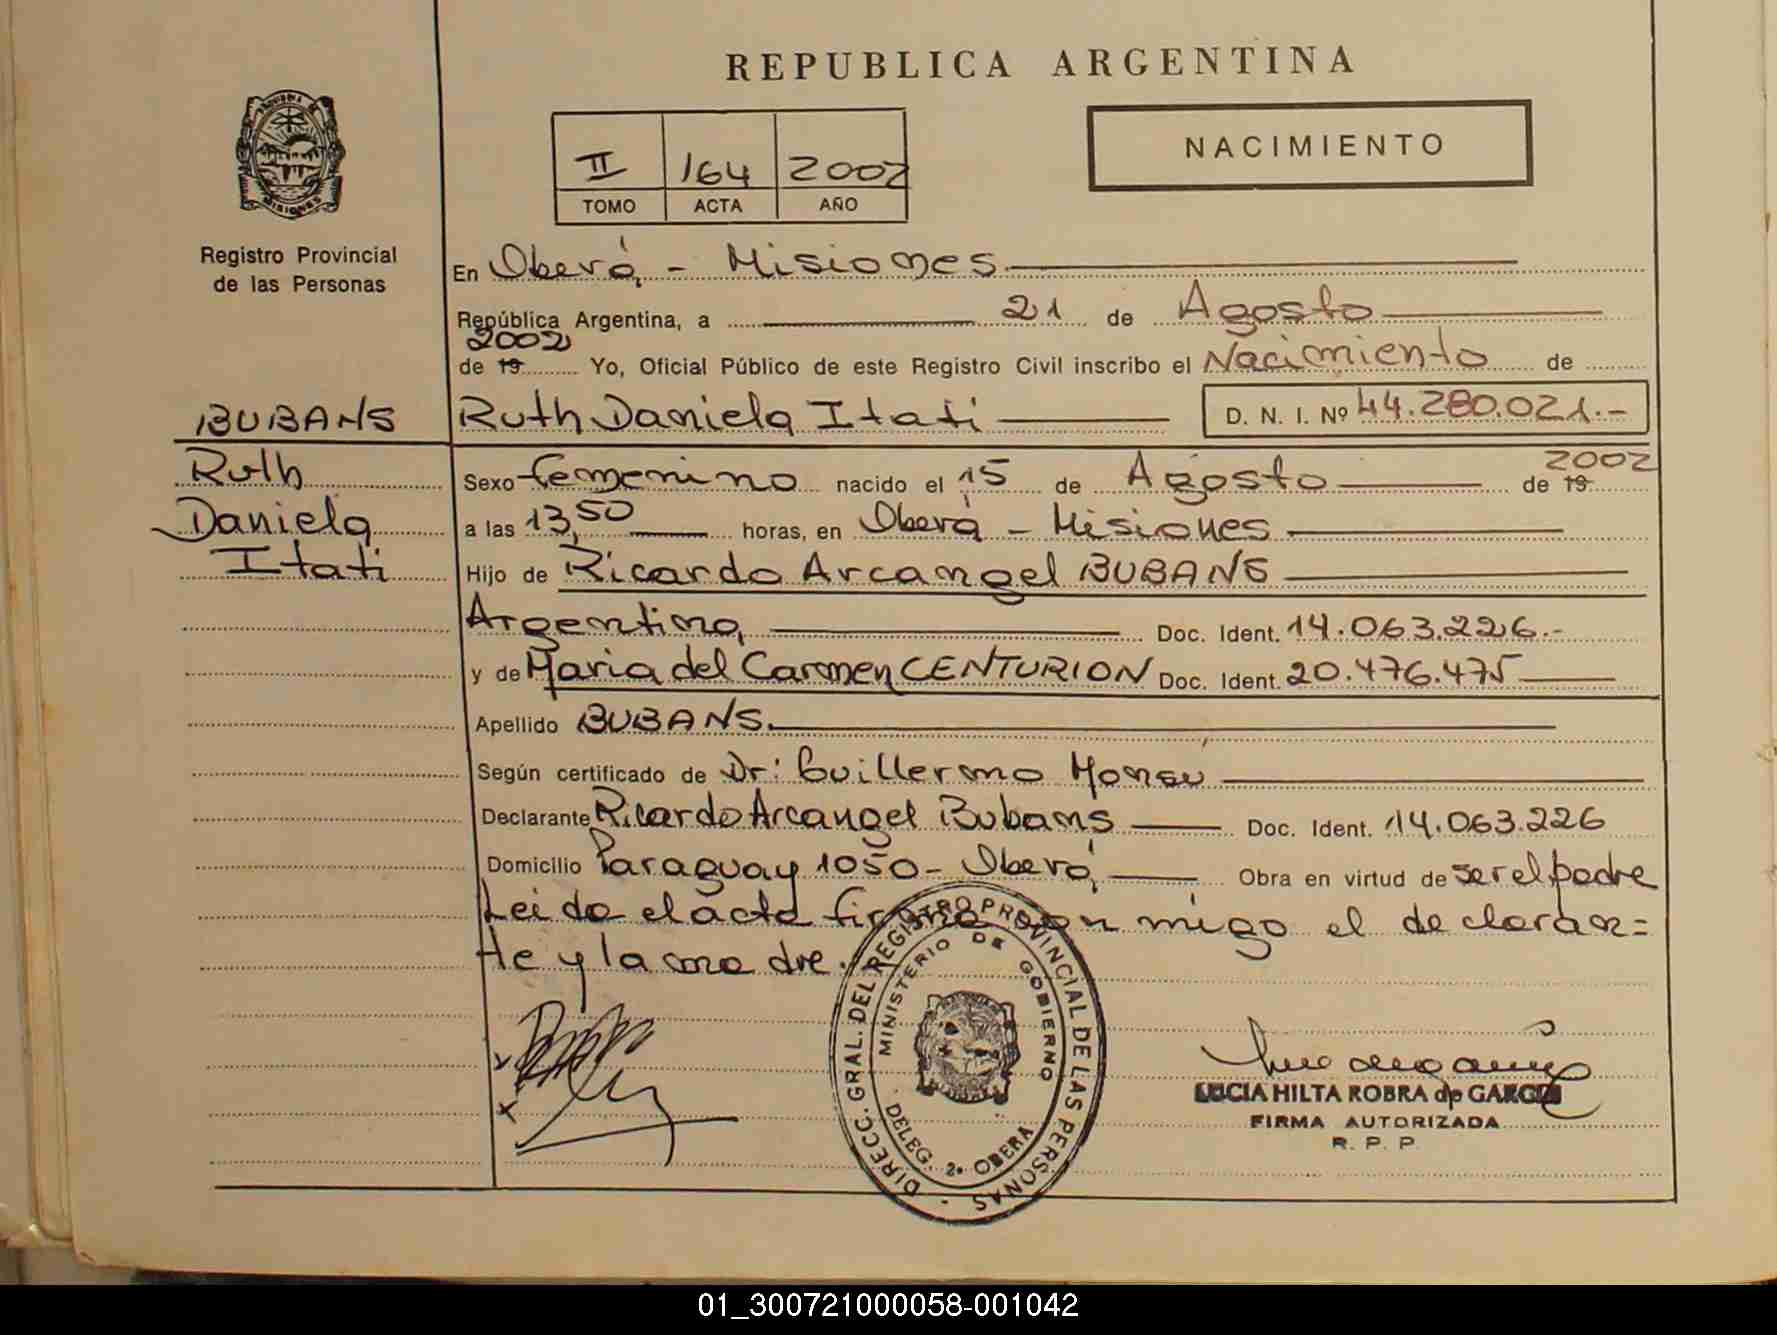 REPUBLICA ARGENTINA
NACIMIENTO
II 164 2002
TOMO ACTA AÑO
Registro Provincial
de las Personas
En Oberá, - Misiones
República Argentina, a 21 de Agosto
2002
de 19 Yo, Oficial Público de este Registro Civil inscribo el Nacimiento de
BUBANS
Ruth Daniela Itati D. N. I. Nº 44.280.021.-
Ruth
Daniela
Itati
2002
Sexo femenino nacido el 15 de Agosto de 19
a las 13,50 horas, en Oberá - Misiones
Hijo de Ricardo Arcangel BUBANS
Argentino, Doc. Ident. 14.063.226.-
y de Maria del Carmen CENTURION Doc. Ident. 20.476.475
Apellido BUBANS.
Según certificado de Dr: Guillermo Monsu
Declarante Ricardo Arcangel Bubans Doc. Ident. 14.063.226
Domicilio Paraguay 1050 - Oberá, Obra en virtud de ser el padre
Leido el acta firma con migo el declaran=
te y la madre.
DIRECC. GRAL. DEL REGISTRO PROVINCIAL DE LAS PERSONAS -
MINISTERIO DE GOBIERNO
DELEG. 2ª OBERA
LUCIA HILTA ROBRA de GARCIA
FIRMA AUTORIZADA
R. P. P.
01_300721000058-001042